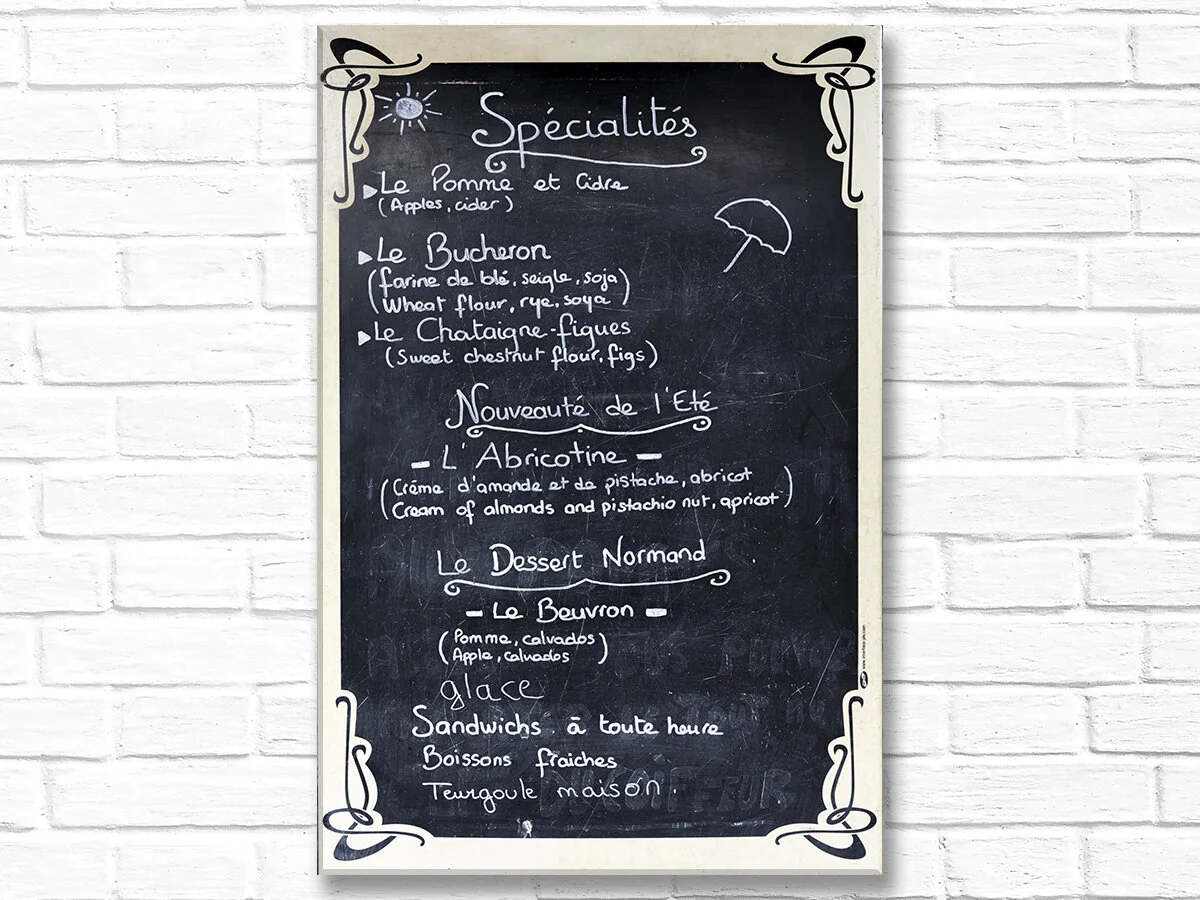 Spécialités
Le Pomme et Cidre
(Apples, cider)
Le Bucheron
(farine de blé, seigle, soja
Wheat flour, rye, soya)
Le Chataigne-figues
(Sweet chestnut flour, figs)
Nouveauté de l'Eté
- L'Abricotine -
(Crème d'amande et de pistache, abricot
Cream of almonds and pistachio nut, apricot)
Le Dessert Normand
- Le Beuvron -
(Pomme, calvados
Apple, calvados)
glace
Sandwichs à toute heure
Boissons fraiches
Teurgoule maison.